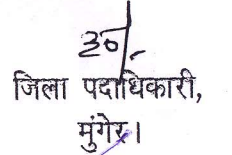 ह०/-
जिला पदाधिकारी,
मुंगेर।